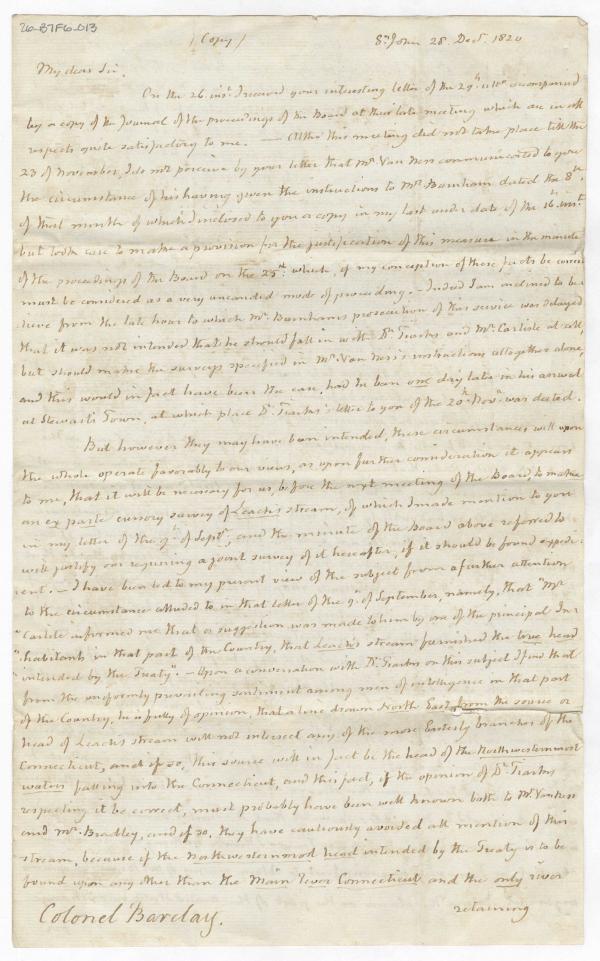 26-B7F6-013
(Copy)
St John 28 Decr. 1820
My dear Sir,
On the 26. inst. I received your interesting letter of the 29th ulto. accompanied
by a copy of the Journal of the proceedings of the Board at their late meeting which are in all
respects quite satisfactory to me. — Altho' this meeting did not take place till the
23 of November, I do not perceive by your letter that Mr. Van Ness communicated to you
the circumstance of his having given the instructions to Mr. Burnham dated the 8th.
of that month of which I inclosed to you a copy in my last under date of the 16th. inst.
but took care to make a provision for the justification of this measure in the minute
of the proceedings of the Board on the 25th. which, if my conception of these facts be correct
must be considered as a very uncandid mode of proceeding. — Indeed I am inclined to be
lieve from the late hour to which Mr. Burnham's prosecution of this service was delayed
that it was not intended that he should fall in with Dr. Tiarks and Mr. Carlile at all,
but should make the surveys specified in Mr. Van Ness's instructions altogether alone,
and this would in fact have been the case, had he been one day later in his arrival
at Stewart's Town, at which place Dr. Tiarks' letter to you of the 20th. Novr. was dated.
But however they may have been intended, these circumstances will upon
the whole operate favorably to our views, as upon further consideration it appears
to me, that it will be necessary for us, before the next meeting of the Board, to make
an ex parte cursory survey of Leach's stream, of which I made mention to you
in my letter of the 9th. of Septr., and the minute of the Board above referred to
will justify our requiring a joint survey of it hereafter, if it should be found expedi-
ent. — I have been led to my present view of the subject from a further attention
to the circumstance alluded to in that letter of the 9th. of September, namely, that "Mr
"Carlile informed me that a suggestion was made to him by one of the principal In-
"habitants in that part of the Country, that Leach's stream furnished the true head
"intended by the Treaty". — Upon a conversation with Dr. Tiarks on this subject I find that
from the uniformly prevailing sentiment among men of intelligence in that part
of the Country, he is fully of opinion, that a line drawn North East from the source or
head of Leach's stream will not intersect any of the more Easterly branches of the
Connecticut, and if so, this source will in fact be the head of the Northwesternmost
waters falling into the Connecticut, and this fact, if the opinion of Dr. Tiarks
respecting it be correct, must probably have been well known both to Mr. Van Ness
and Mr. Bradley, and if so, they have cautiously avoided all mention of this
stream, because if the Northwesternmost head intended by the Treaty is to be
found upon any other than the Main River Connecticut and the only river
Colonel Barclay.
retaining